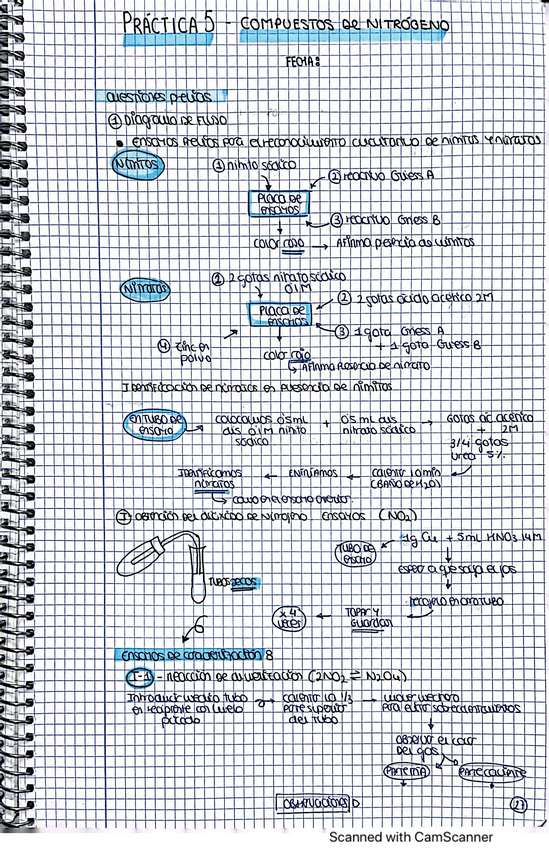 PRÁCTICA 5 - COMPUESTOS DE NITRÓGENO
FECHA:
CUESTIONES PREVIAS
① DIAGRAMA DE FLUJO
• ENSAYOS PREVIOS PARA EL RECONOCIMIENTO CUALITATIVO DE NITRITOS Y NITRATOS
NITRITOS
① nitrito sódico
② reactivo Griess A
PLACA DE ENSAYOS
③ reactivo Griess B
COLOR ROJO → AFIRMA PRESENCIA DE NITRITOS
NITRATOS
① 2 gotas nitrato sódico 0'1M
② 2 gotas ácido acético 2M
PLACA DE ENSAYOS
③ 1 gota Griess A
+ 1 gota Griess B
④ zinc en polvo
COLOR ROJO
↳ AFIRMA PRESENCIA DE NITRATO
IDENTIFICACIÓN DE NITRATOS EN PRESENCIA DE NITRITOS
EN TUBO DE ENSAYO
COLOCAMOS 0'5 mL dis 0'1M nitrito sódico
+ 0'5 mL dis nitrato sódico
→ 6 gotas ác. acético 2M
+
3/4 gotas urea 5%
CALENTAR 10 min (BAÑO DE H₂O)
← ENFRIAMOS
← IDENTIFICAMOS NITRATOS
↳ como en el ensayo anterior.
① OBTENCIÓN DEL DIÓXIDO DE NITRÓGENO ENSAYOS (NO₂)
TUBOS SECOS
TUBO DE ENSAYO
1g Cu + 5mL HNO₃ 14M
esperar a que salga el gas
recogerlo en otro tubo
TAPAR Y GUARDAR
x 4 veces
6
ENSAYOS DE CARACTERIZACIÓN 8
I-1 - REACCIÓN DE DIMERIZACIÓN (2NO₂ ⇌ N₂O₄)
Introducir medio tubo en recipiente con hielo picado
→ calentar 1/3 parte superior del tubo
→ para evitar sobrecalentamientos
observar el color del gas
PARTE FRÍA
PARTE CALIENTE
OBSERVACIONES
27
Scanned with CamScanner